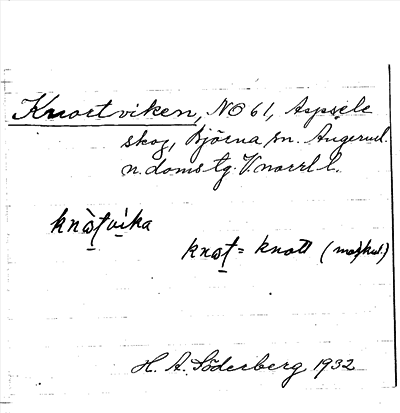 Knortviken, NO 61, Aspsele
skog, Björna sn. Ångerml.
n. domstg. V.norrl l.
knòṭvika
knoṭ = knott (maskul.)
H. A. Söderberg 1932